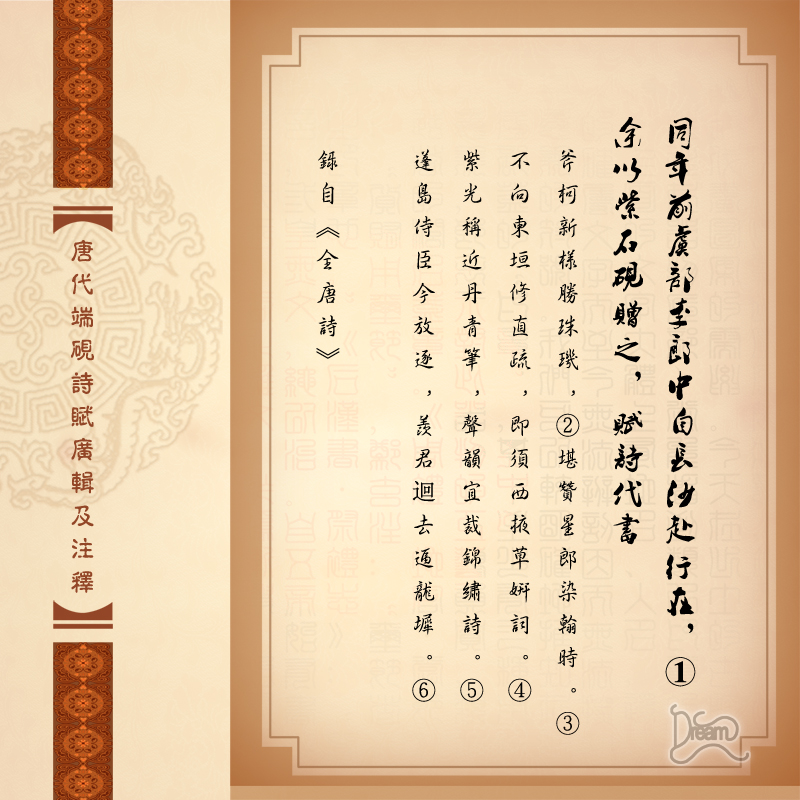 同年前虞部李郎中自長沙赴行在，①
余以紫石硯贈之，賦詩代書
斧柯新樣勝珠璣，②堪贊星郎染翰時。③
不向東垣修直疏，即須西掖草妍詞。④
紫光稱近丹青筆，聲韻宜裁錦繡詩。⑤
蓬島侍臣今放逐，羨君迴去逼龍墀。⑥
錄自《全唐詩》
唐代端硯詩賦廣輯及注釋
Dream